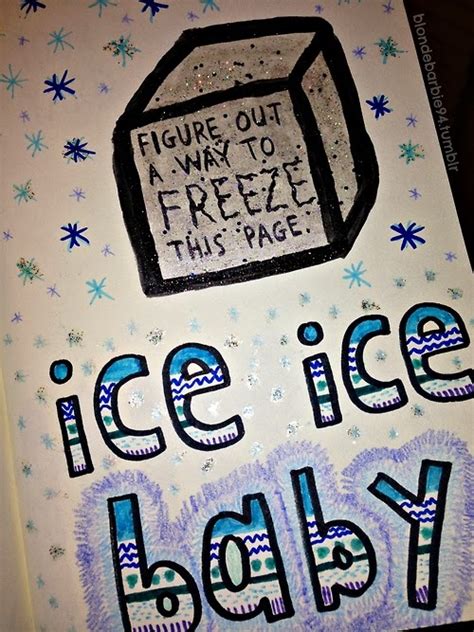 FIGURE OUT
A WAY TO
FREEZE
THIS PAGE.
ice ice
baby
blondebarbie94.tumblr